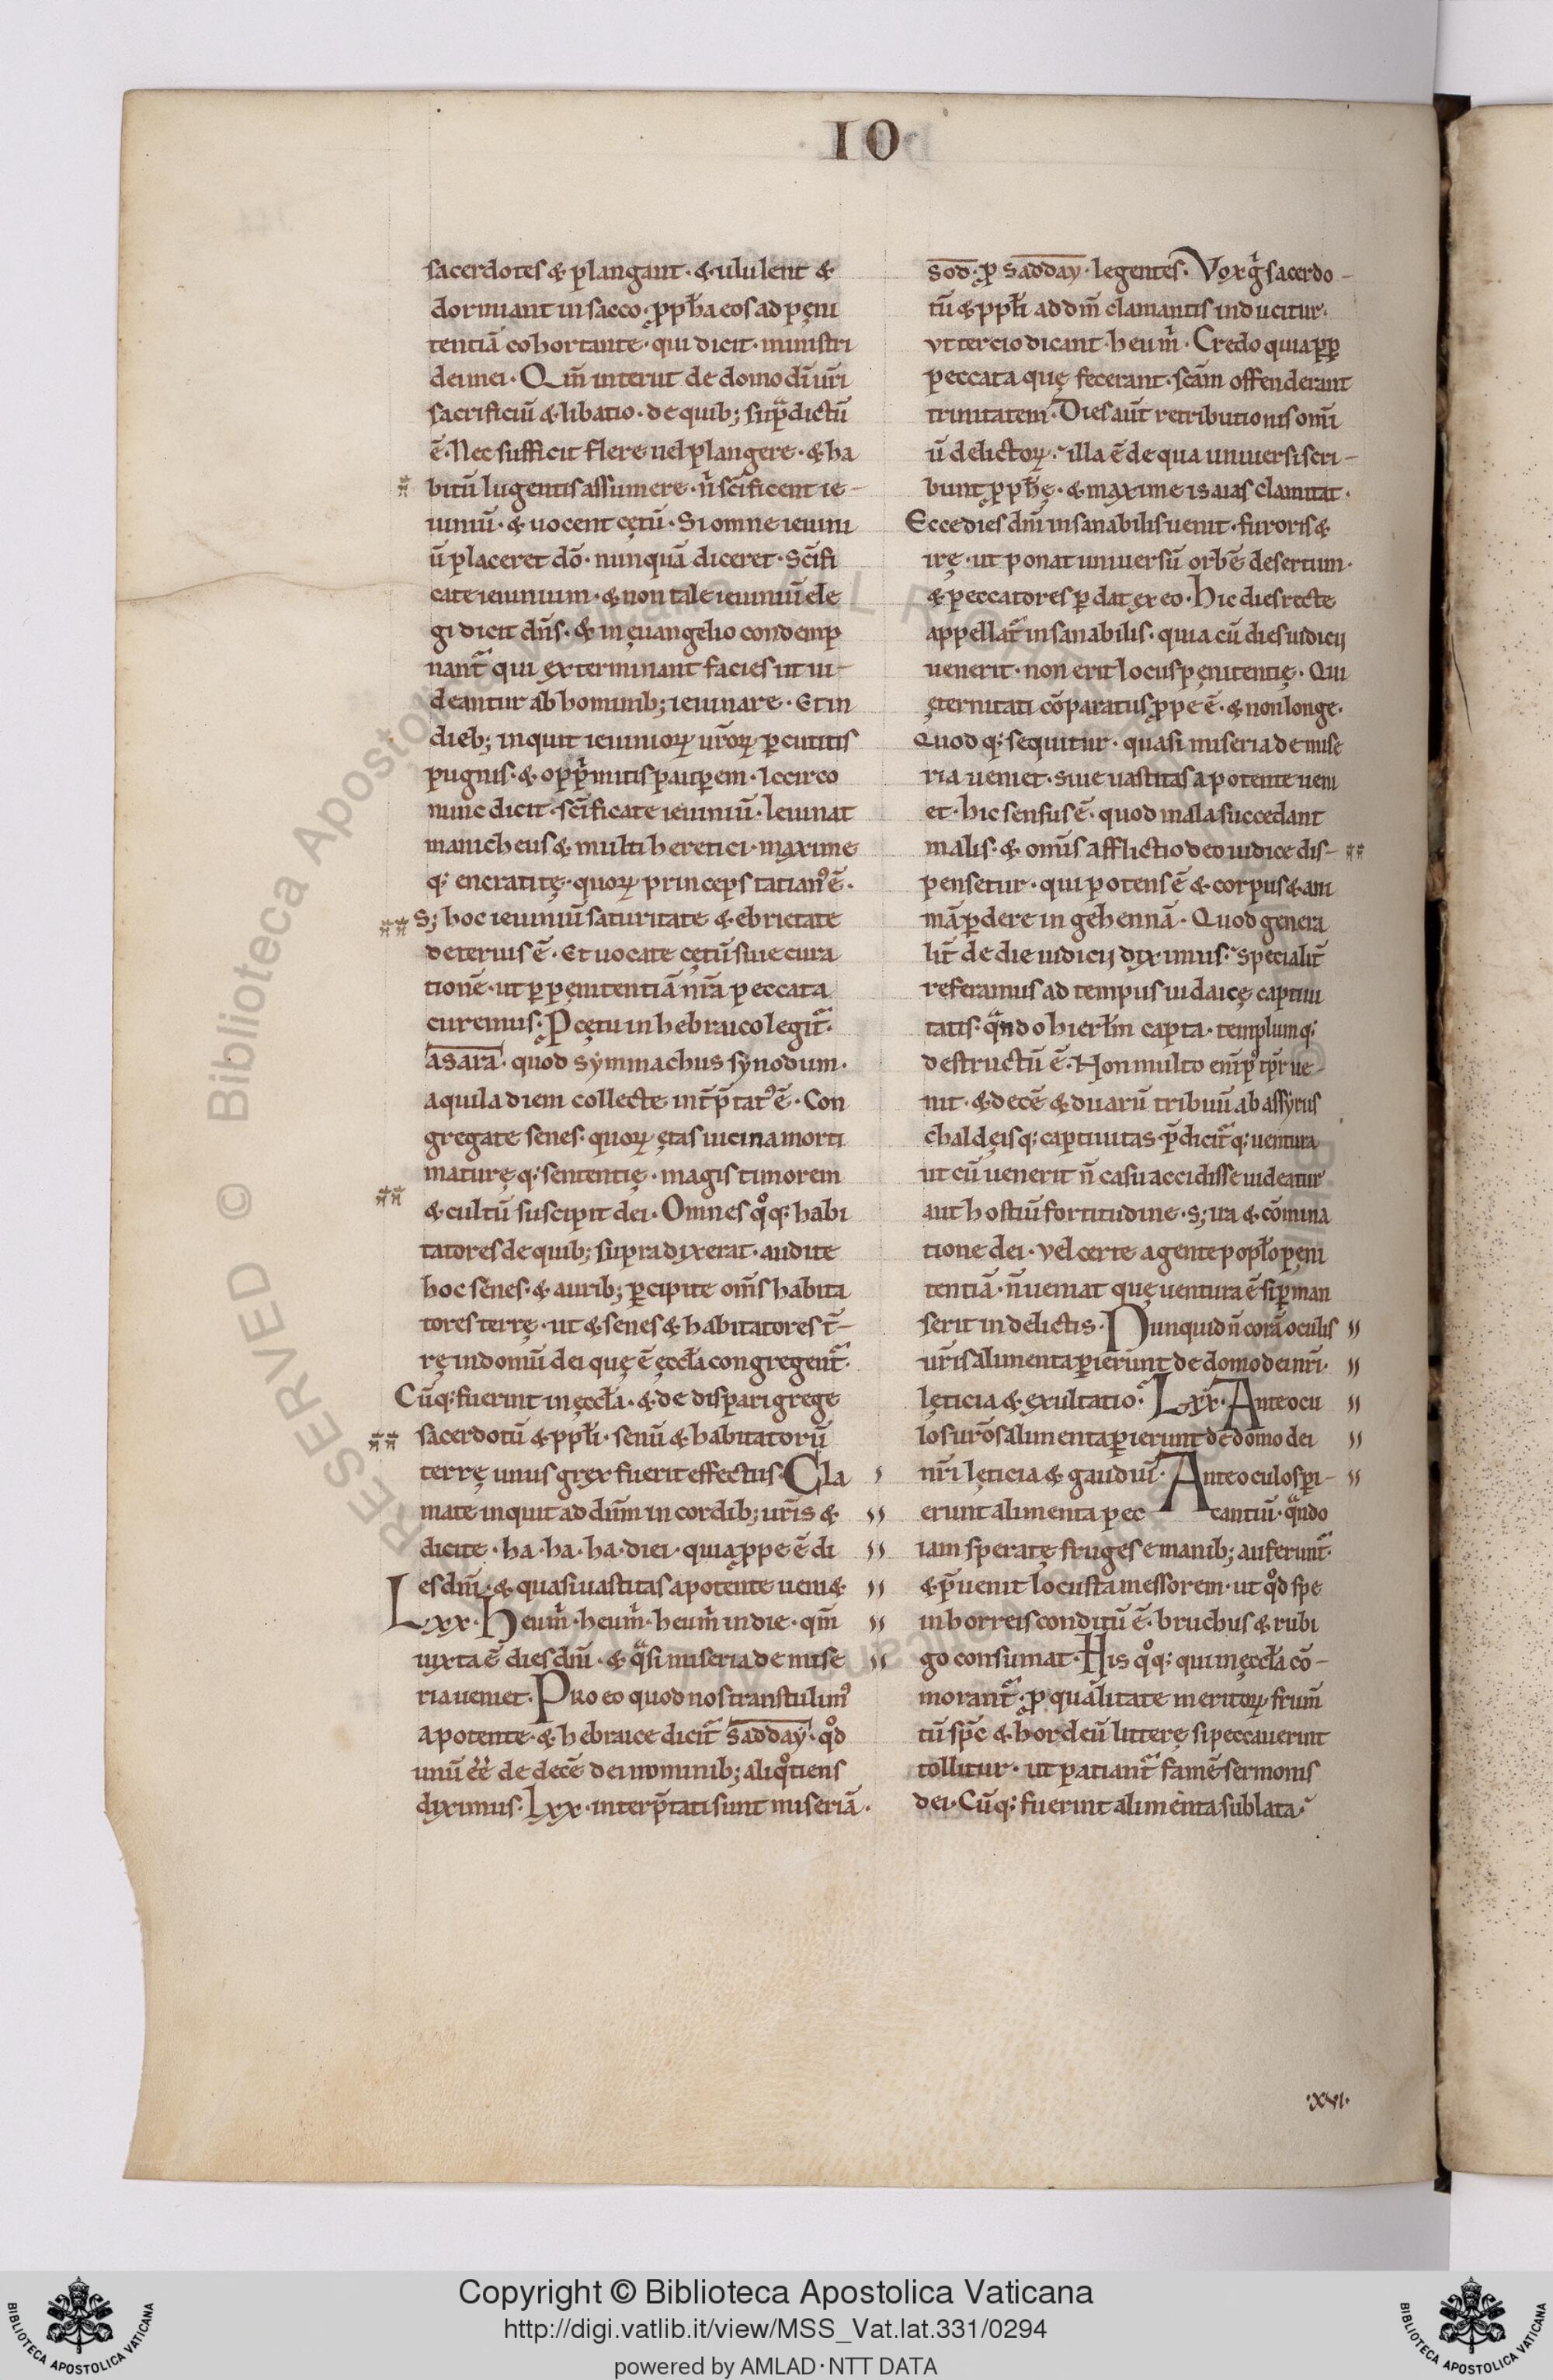 IO
sacerdotes & plangant · & ululent &
dormiant in sacco · ꝓph̃a eos ad pęni
tentiã cohortante · qui dicit · ministri
dei mei · Qm̃ interiit de domo dĩ ur̃i
sacrificiũ & libatio · de quib; sup̃dictũ
ẽ · Nec sufficit flere uel plangere · & ha
bitũ lugentis assumere · ñ scĩficent ie-
iuniũ · & uocent cętũ · Si omne ieiuni
ũ placeret dõ · nunquã diceret · Scĩfi
cate ieiunium · & non tale ieiuniũ ele
gi dicit dñs · & in ęuangelio condemp
nant᷑ qui exterminant facies ut ui-
deantur ab hominib; ieiunare · Et in
dieb; inquit ieiunioꝝ ur̃oꝝ ꝑcutitis
pugnis · & opp̃mitis pauꝑem · Iccirco
nunc dicit · scĩficate ieiuniũ · Ieiunat
manicheus & multi heretici · maxime
q; encratitę · quoꝝ princeps tatianꝰ ẽ ·
S; hoc ieiuniũ saturitate & ebrietate
deterius ẽ · Et uocate cętũ siue cura
tionẽ · ut ꝑ pęnitentiã nr̃a peccata
curemus · P cętu in hebraico legit᷑ ·
asara · quod symmachus synodum ·
aquila diem collecte int̃p̃tatꝰ ẽ · Con
gregate senes · quoꝝ ętas uicina morti
maturę q; sententię · magis timorem
& cultũ suscipit dei · Omnes qͦq; habi
tatores de quib; supra dixerat · audite
hoc senes · & aurib; ꝑcipite om̃s habita
tores terrę · ut & senes & habitatores t̃-
rę in domũ dei quę ẽ ęccła congregent᷑ ·
Cũq; fuerint in ęccła · & de dispari grege
sacerdotũ & ppłi · senũ & habitatorũ
terrę unus grex fuerit effectus · Cla
mate inquit ad dñm in cordib; ur̃is &
dicite · ha · ha · ha · diei · quia ꝓpe ẽ di
es dñi · & quasi uastitas a potente ueni&
Lxx · Heu m̃ · heu m̃ · heu m̃ in die · qm̃
iuxta ẽ dies dñi · & q̃si miseria de mise
ria ueniet · Pro eo quod nos transtulimꝰ
a potente · & hebraice dicit᷑ sadday · qͦd
unũ ẽẽ de decẽ dei nominib; aliqͦtiens
diximus · Lxx · interp̃tati sunt miseriã ·
sod · ꝓ sadday · legentes · Vox g̃ sacerdo-
tũ & ppłi ad dm̃ clamantis inducitur ·
vt tercio dicant · heu m̃ · Credo quia ꝓp
peccata quę fecerant · scãm offenderant
trinitatem · Dies aũt retributionis om̃i
ũ delictoꝝ · illa ẽ de qua uniuersi scri-
bunt ꝓph̃ę · & maxime isaias clamitat ·
Ecce dies dñi insanabilis uenit · furoris &
irę · ut ponat uniuersũ orbẽ desertum ·
& peccatores ꝑdat ex eo · Hic dies recte
appellat᷑ insanabilis · quia cũ dies iudicij
uenerit · non erit locus pęnitentię · Qui
ęternitati cõparatus ꝓpe ẽ · & non longe ·
Quod q; sequitur · quasi miseria de mise
ria ueniet · siue uastitas a potente ueni
et · hic sensus ẽ · quod mala succedant
malis · & om̃is afflictio deo iudice dis-
pensetur · qui potens ẽ & corpus & ani
mã ꝑdere in gehennã · Quod genera
lit̃ de die iudicij diximus · specialit̃
referamus ad tempus iudaicę captiui
tatis · q̃ndo hierłm capta · templumq;
destructũ ẽ · Non multo enĩ p̃ tp̃r ue-
nit · & decẽ & duarũ tribuũ ab assyrus
chaldęisq; captiuitas · p̃dicit᷑q; uentura
ut cũ uenerit ñ casu accidisse uideatur
aut hostiũ fortitudine · S; ira & cõmina
tione dei · Vel certe agente popło pęni
tentiã · ñ ueniat quę uentura ẽ si ꝑman
serit in delictis · Nunquid ñ corã oculis
ur̃is alimenta ꝑierunt de domo dei nr̃i ·
lęticia & exultatio · Lxx · Ante ocu
los ur̃os alimenta ꝑierunt de domo dei
nr̃i lęticia & gaudiũ · Ante oculos ꝑi-
erunt alimenta pec cantiũ · q̃ndo
iam speratę fruges e manib; auferunt᷑ ·
& p̃uenit locusta messorem · ut qͦd spe
in horreis conditũ ẽ · bruchus & rubi
go consumat · His qͦq; qui in ęccła cõ-
morant᷑ · ꝓ qualitate meritoꝝ · frum̃
tũ sp̃c & hordeũ litterę si peccauerint
tollitur · ut patiant᷑ famẽ sermonis
dei · Cũq; fuerint alimenta sublata ·
·xvi·
© Biblioteca Apostolica Vaticana
Copyright © Biblioteca Apostolica Vaticana
http://digi.vatlib.it/view/MSS_Vat.lat.331/0294
powered by AMLAD·NTT DATA
BIBLIOTECA APOSTOLICA VATICANA
BIBLIOTECA APOSTOLICA VATICANA